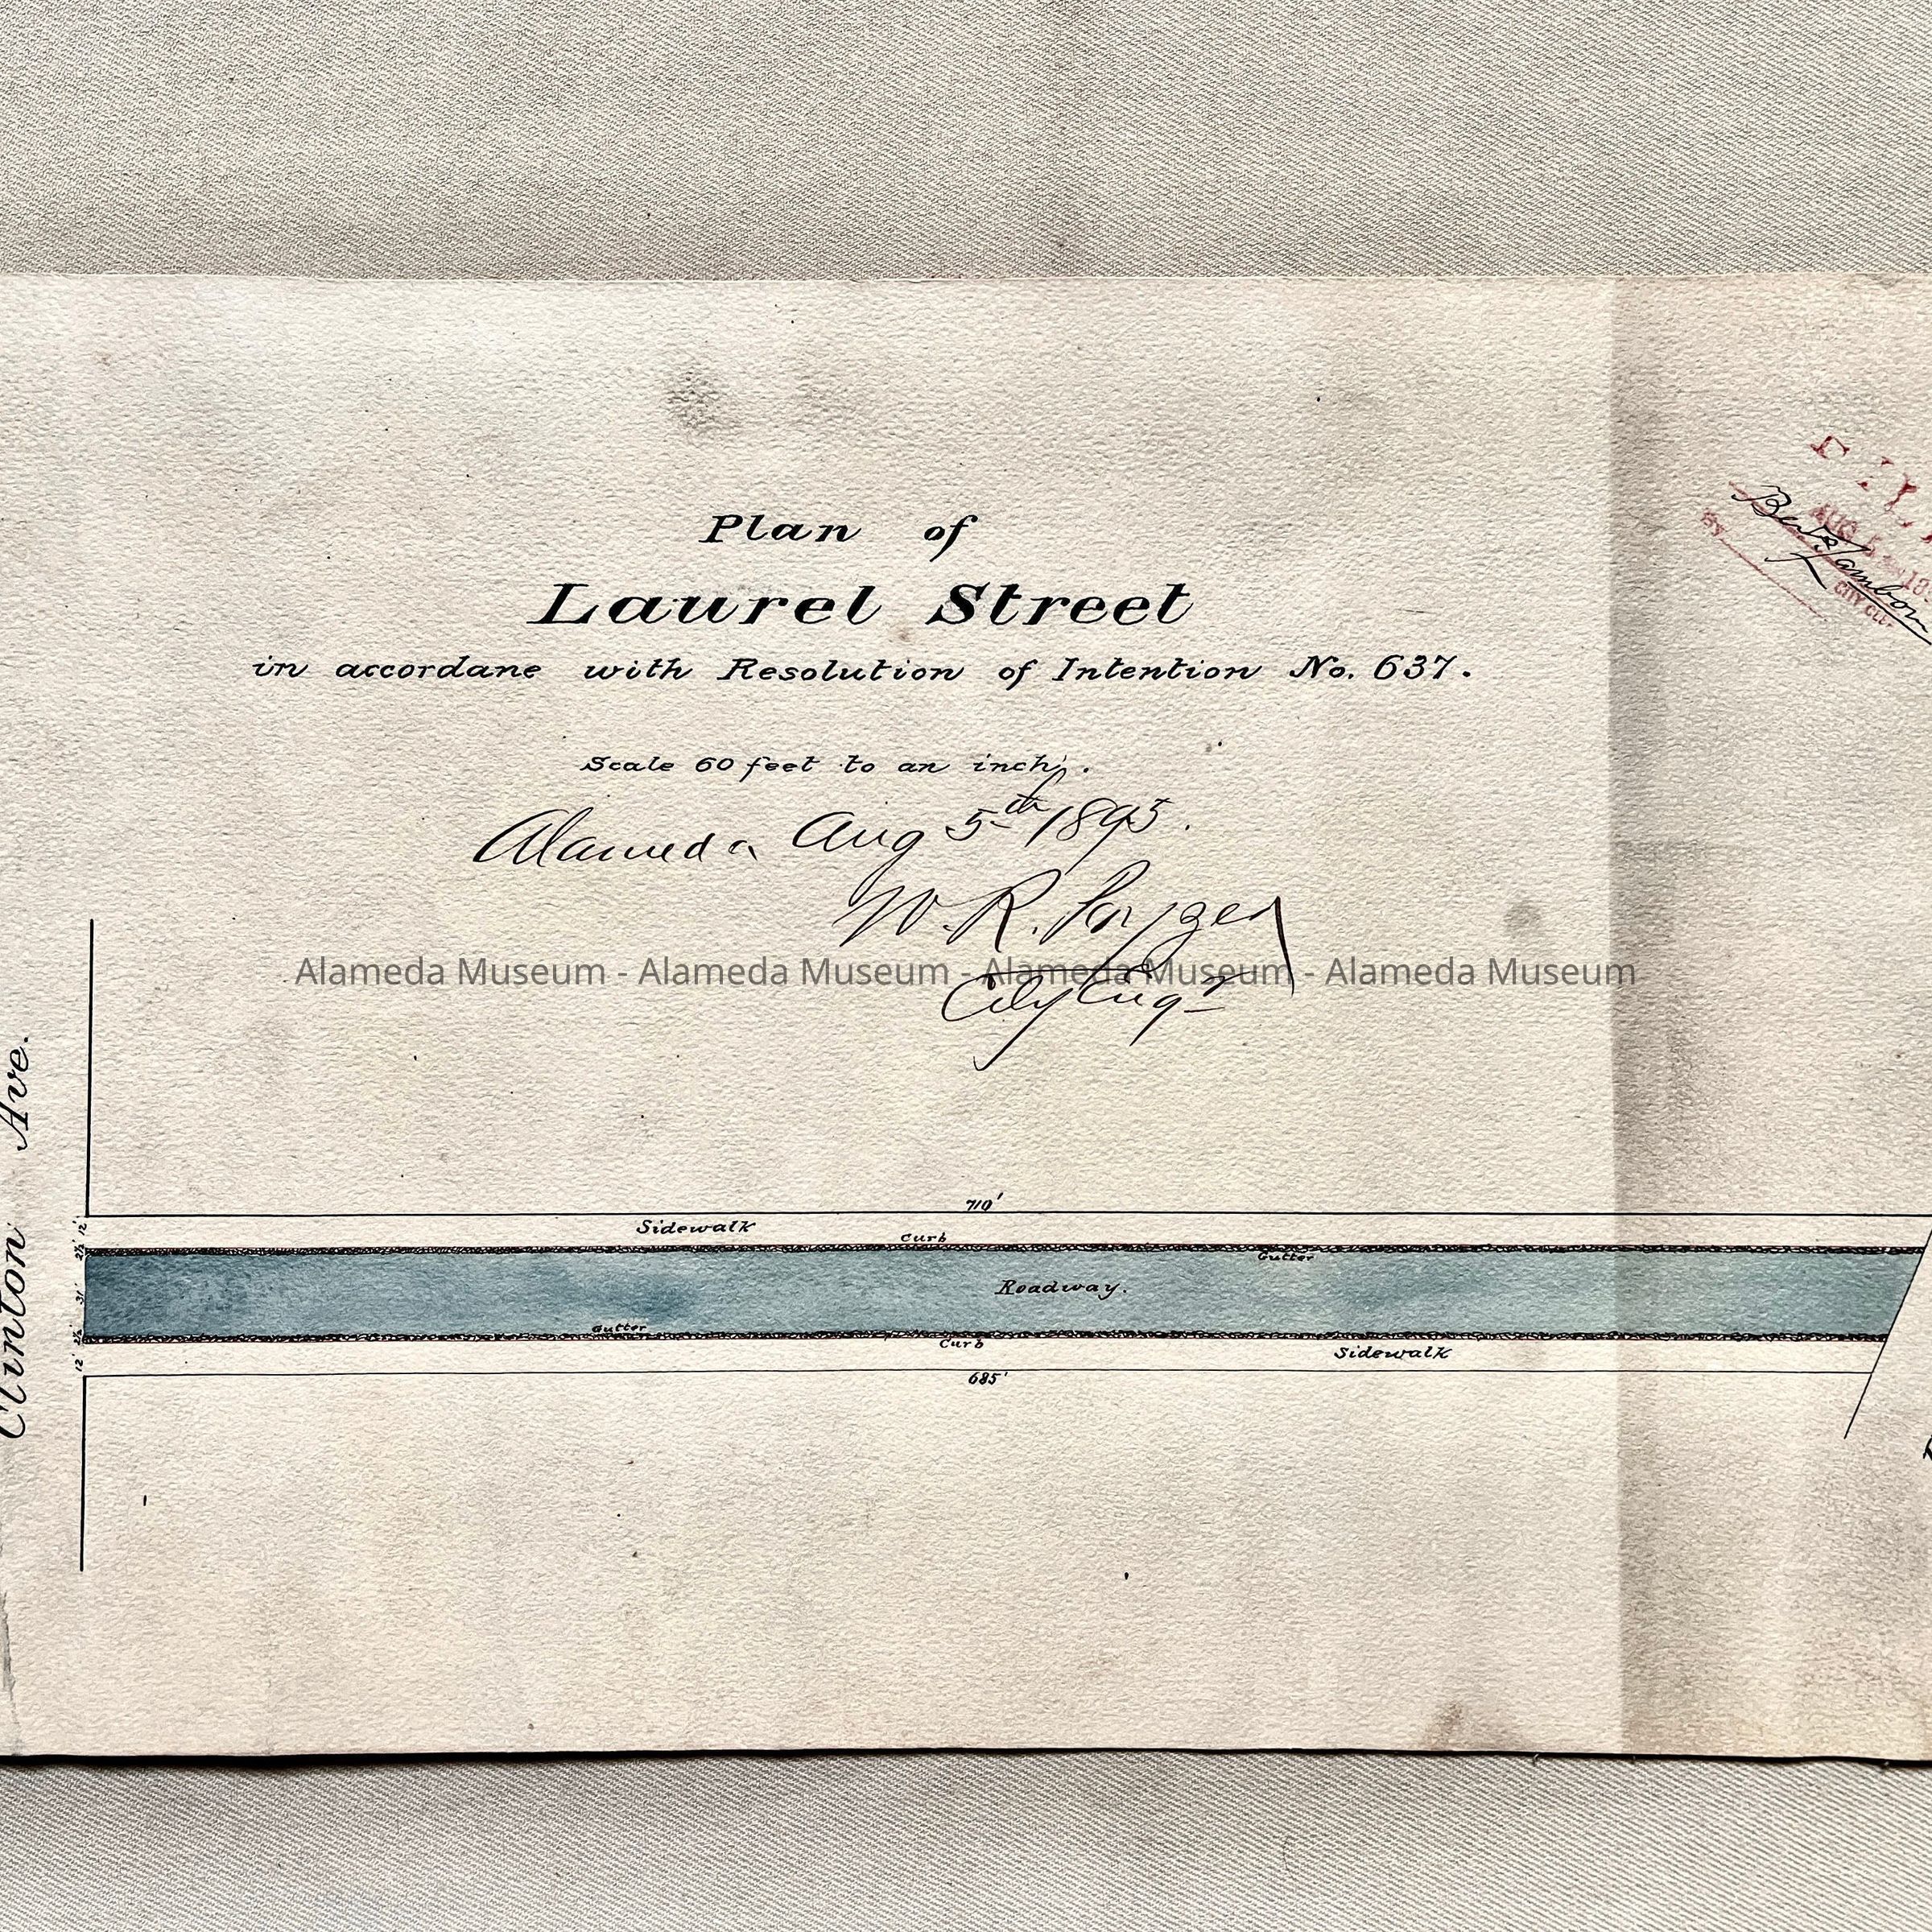 Plan of
Laurel Street
in accordane with Resolution of Intention No. 637.
Scale 60 feet to an inch.
Alameda Aug 5th 1895.
W. R.
City Engr
Alameda Museum - Alameda Museum - Alameda Museum - Alameda Museum
AUG 5
By
CITY CLE
Clinton Ave.
710'
12'
Sidewalk
Curb
2½'
Gutter
31'
Roadway.
Gutter
2½'
Curb
12'
Sidewalk
685'